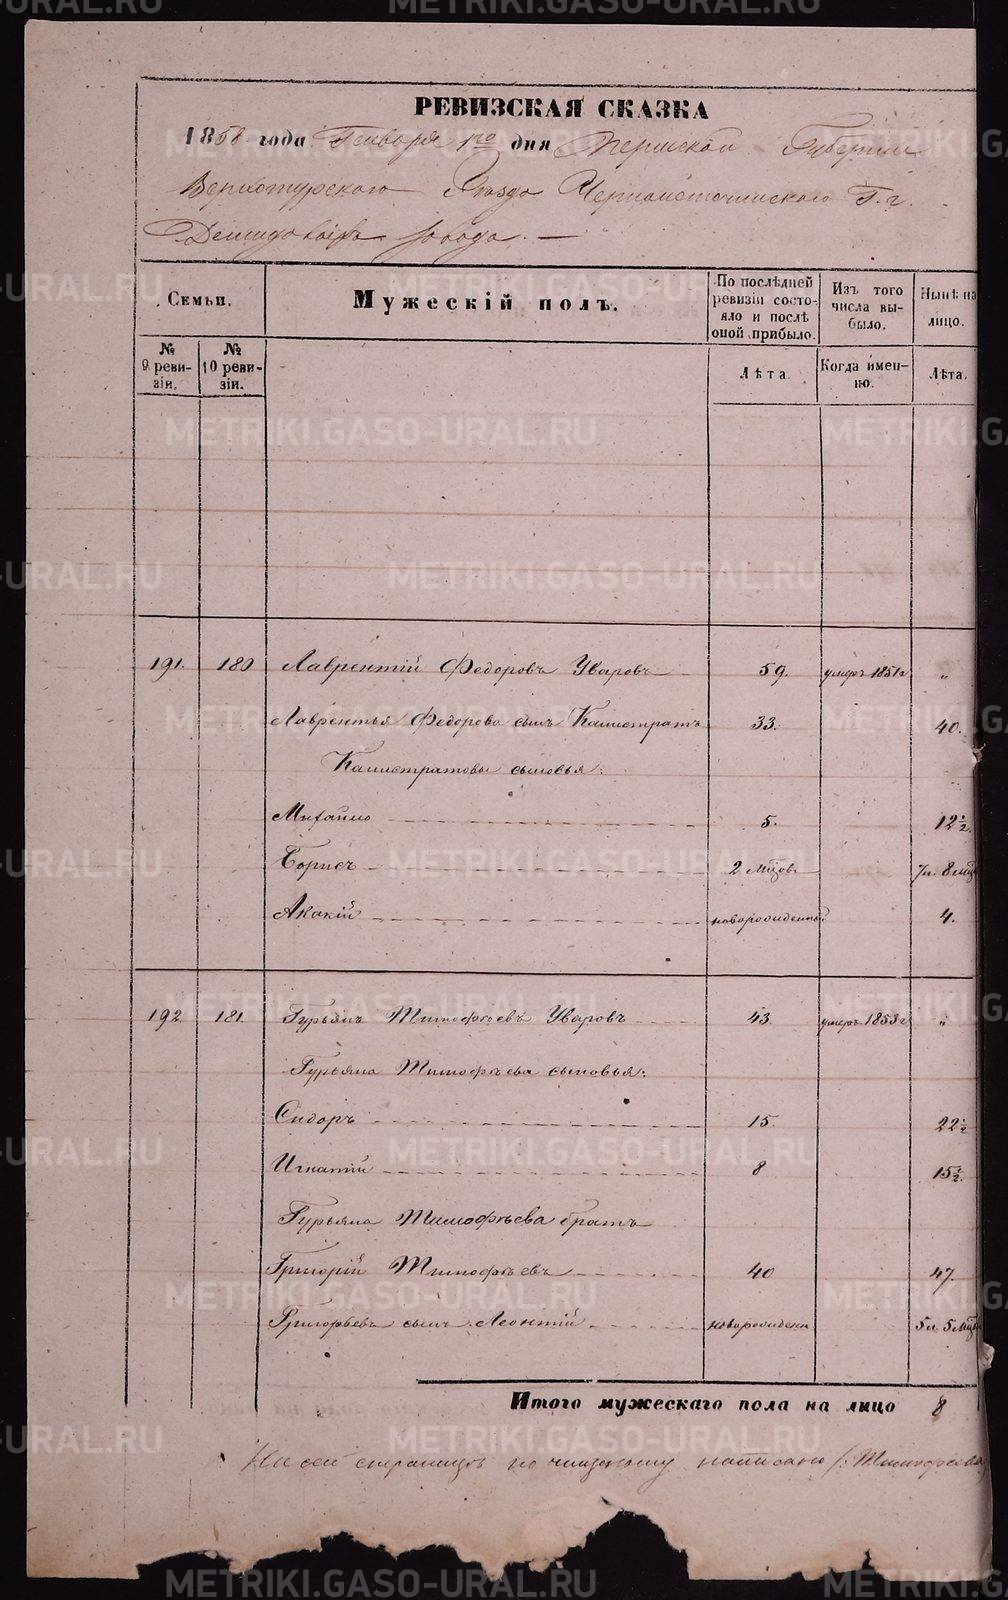 РЕВИЗСКАЯ СКАЗКА
1858 года Генваря 1го дня Пермской Губернии
Верхотурскаго Уезда Черноисточинскаго Г.г.
Демидовыхъ завода. —
Семьи.
№ 9 реви-зіи.
№ 10 реви-зіи.
Мужескій полъ.
По послѣдней ревизіи состо-яло и послѣ оной прибыло.
Лѣта.
Изъ того числа вы-было.
Когда имен-но.
Нынѣ на лицо.
Лѣта.
191. 180 Лаврентій Федоровъ Уваровъ 59. умеръ 1851г „
Лаврентья Федорова сынъ Калистратъ 33. 40.
Калистратовы сыновья:
Михайло 5. 12½.
Борисъ 2 мѣсцовъ 7л. 8 мѣсц
Акакій новорожденный 4.
192. 181. Гурьянъ Тимофѣевъ Уваровъ 43. умеръ 1853г „
Гурьяна Тимофѣева сыновья:
Сидоръ 15. 22½
Игнатій 8 15½.
Гурьяна Тимофѣева братъ
Григорій Тимофѣевъ 40 47.
Григорьевъ сынъ Леонтій новорожденн 5л. 5 мѣсц
Итого мужескаго пола на лицо 8
На сей страницѣ по чищеному написано /: Тимофеева
METRIKI.GASO-URAL.RU